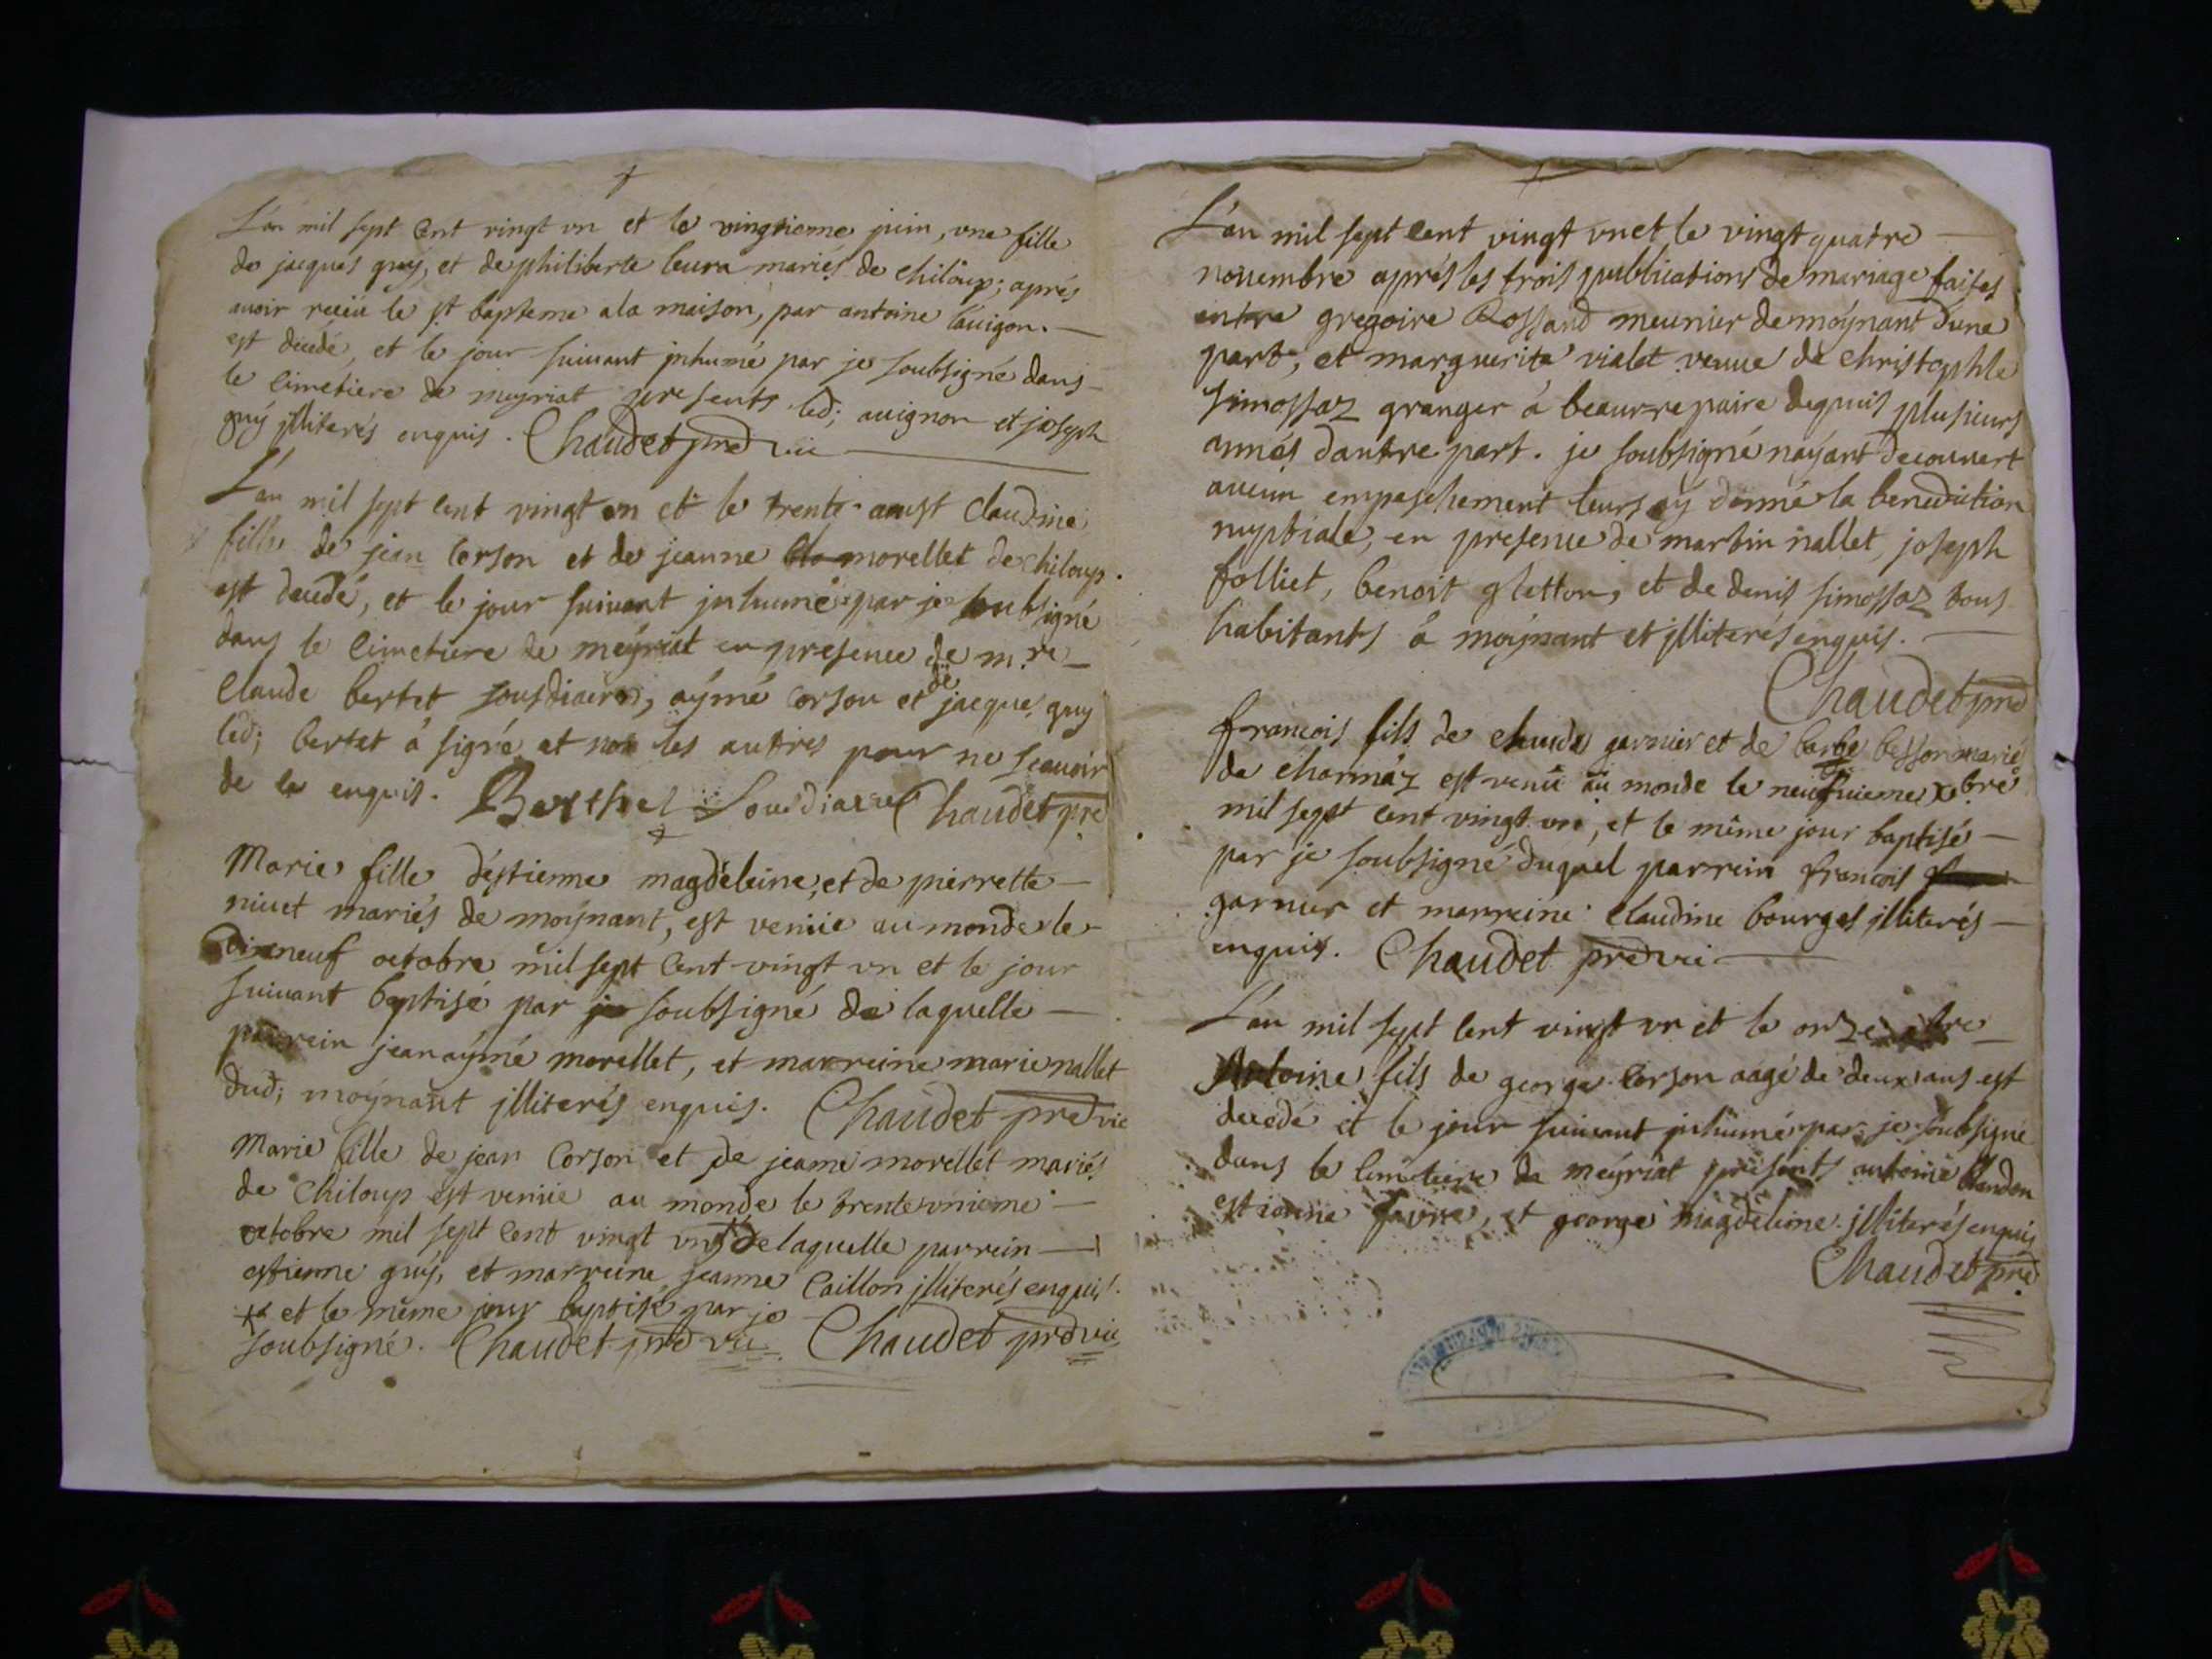 L'an mil sept cent vingt vn et le vingtieme juin, vne fille
de jacques guy, et de philiberte leura mariés de chiloup; aprés
auoir receü le st bapteme a la maison, par antoine l'auigon.
est decedé, et le jour suiuant jnhumé par je soubsigné dans
le cimetiere de meyriat presents led; auignon et joseph
guÿ jlliterés enquis. Chaudet pred vic
L'an mil sept cent vingt vn et le trente aoust claudine
fille de jean Corson et de jeanne morellet de chiloup.
est decedé, et le jour suiuant jnhumé par je soubsigné
dans le cimetiere de meÿriat en presence de m.re
Claude bertet sousdiacre, aÿmé Corson et de jacque guy
led; bertet à signé et non les autres pour ne scauoir
de ce enquis. Berthet Sousdiacre Chaudet pre
Marie fille d'estienne magdeleine, et de pierrette
niuet mariés de moÿnant, est venüe au monde le
dixneuf octobre mil sept cent vingt vn et le jour
suiuant baptisé par je soubsigné de laquelle
parrein jean aÿmé morellet, et marreine marie nallet
dud; moÿnant jlliterés enquis. Chaudet pred vic
Marie fille de jean Corson et de jeanne morellet mariés
de chiloup est venüe au monde le trente vnieme
octobre mil sept cent vingt vn de laquelle parrein
estienne guÿ, et marreine jeanne Caillon jlliterés enquis.
et le même jour baptisé par je
soubsigné. Chaudet pred vic. Chaudet pred vic
L'an mil sept cent vingt vn et le vingt quatre
nouembre aprés les trois publications de mariage faites
entre gregoire Rossand meunier de moÿnant d'une
part, et marguerite vialet veuue de christophle
simossaz granger à beaurepaire depuis plusieurs
annés d'autre part. je soubsigné n'aÿant decouuert
aucun empeschement leurs aÿ donné la benediction
nuptiale, en presence de martin nallet, joseph
folliet, benoit gletton, et de denis simossaz tous
habitants à moÿnant et jlliterés enquis.
Chaudet pred
francois fils de claude garnier et de barbe besson marié
de charmaz est venü aü monde le neufuieme xbre
mil sept cent vingt vn, et le même jour baptisé
par je soubsigné duquel parrein francois
garnier et marreine claudine bourges jlliterés
enquis. Chaudet pred vic
L'an mil sept cent vingt vn et le onze xbre
Antoine fils de george Corson aagé de deux ans est
decedé et le jour suiuant jnhumé par je soubsigné
dans le cimetiere de meÿriat presents antoine blandon
estienne faure, et george magdeleine jlliterés enquis
Chaudet pre